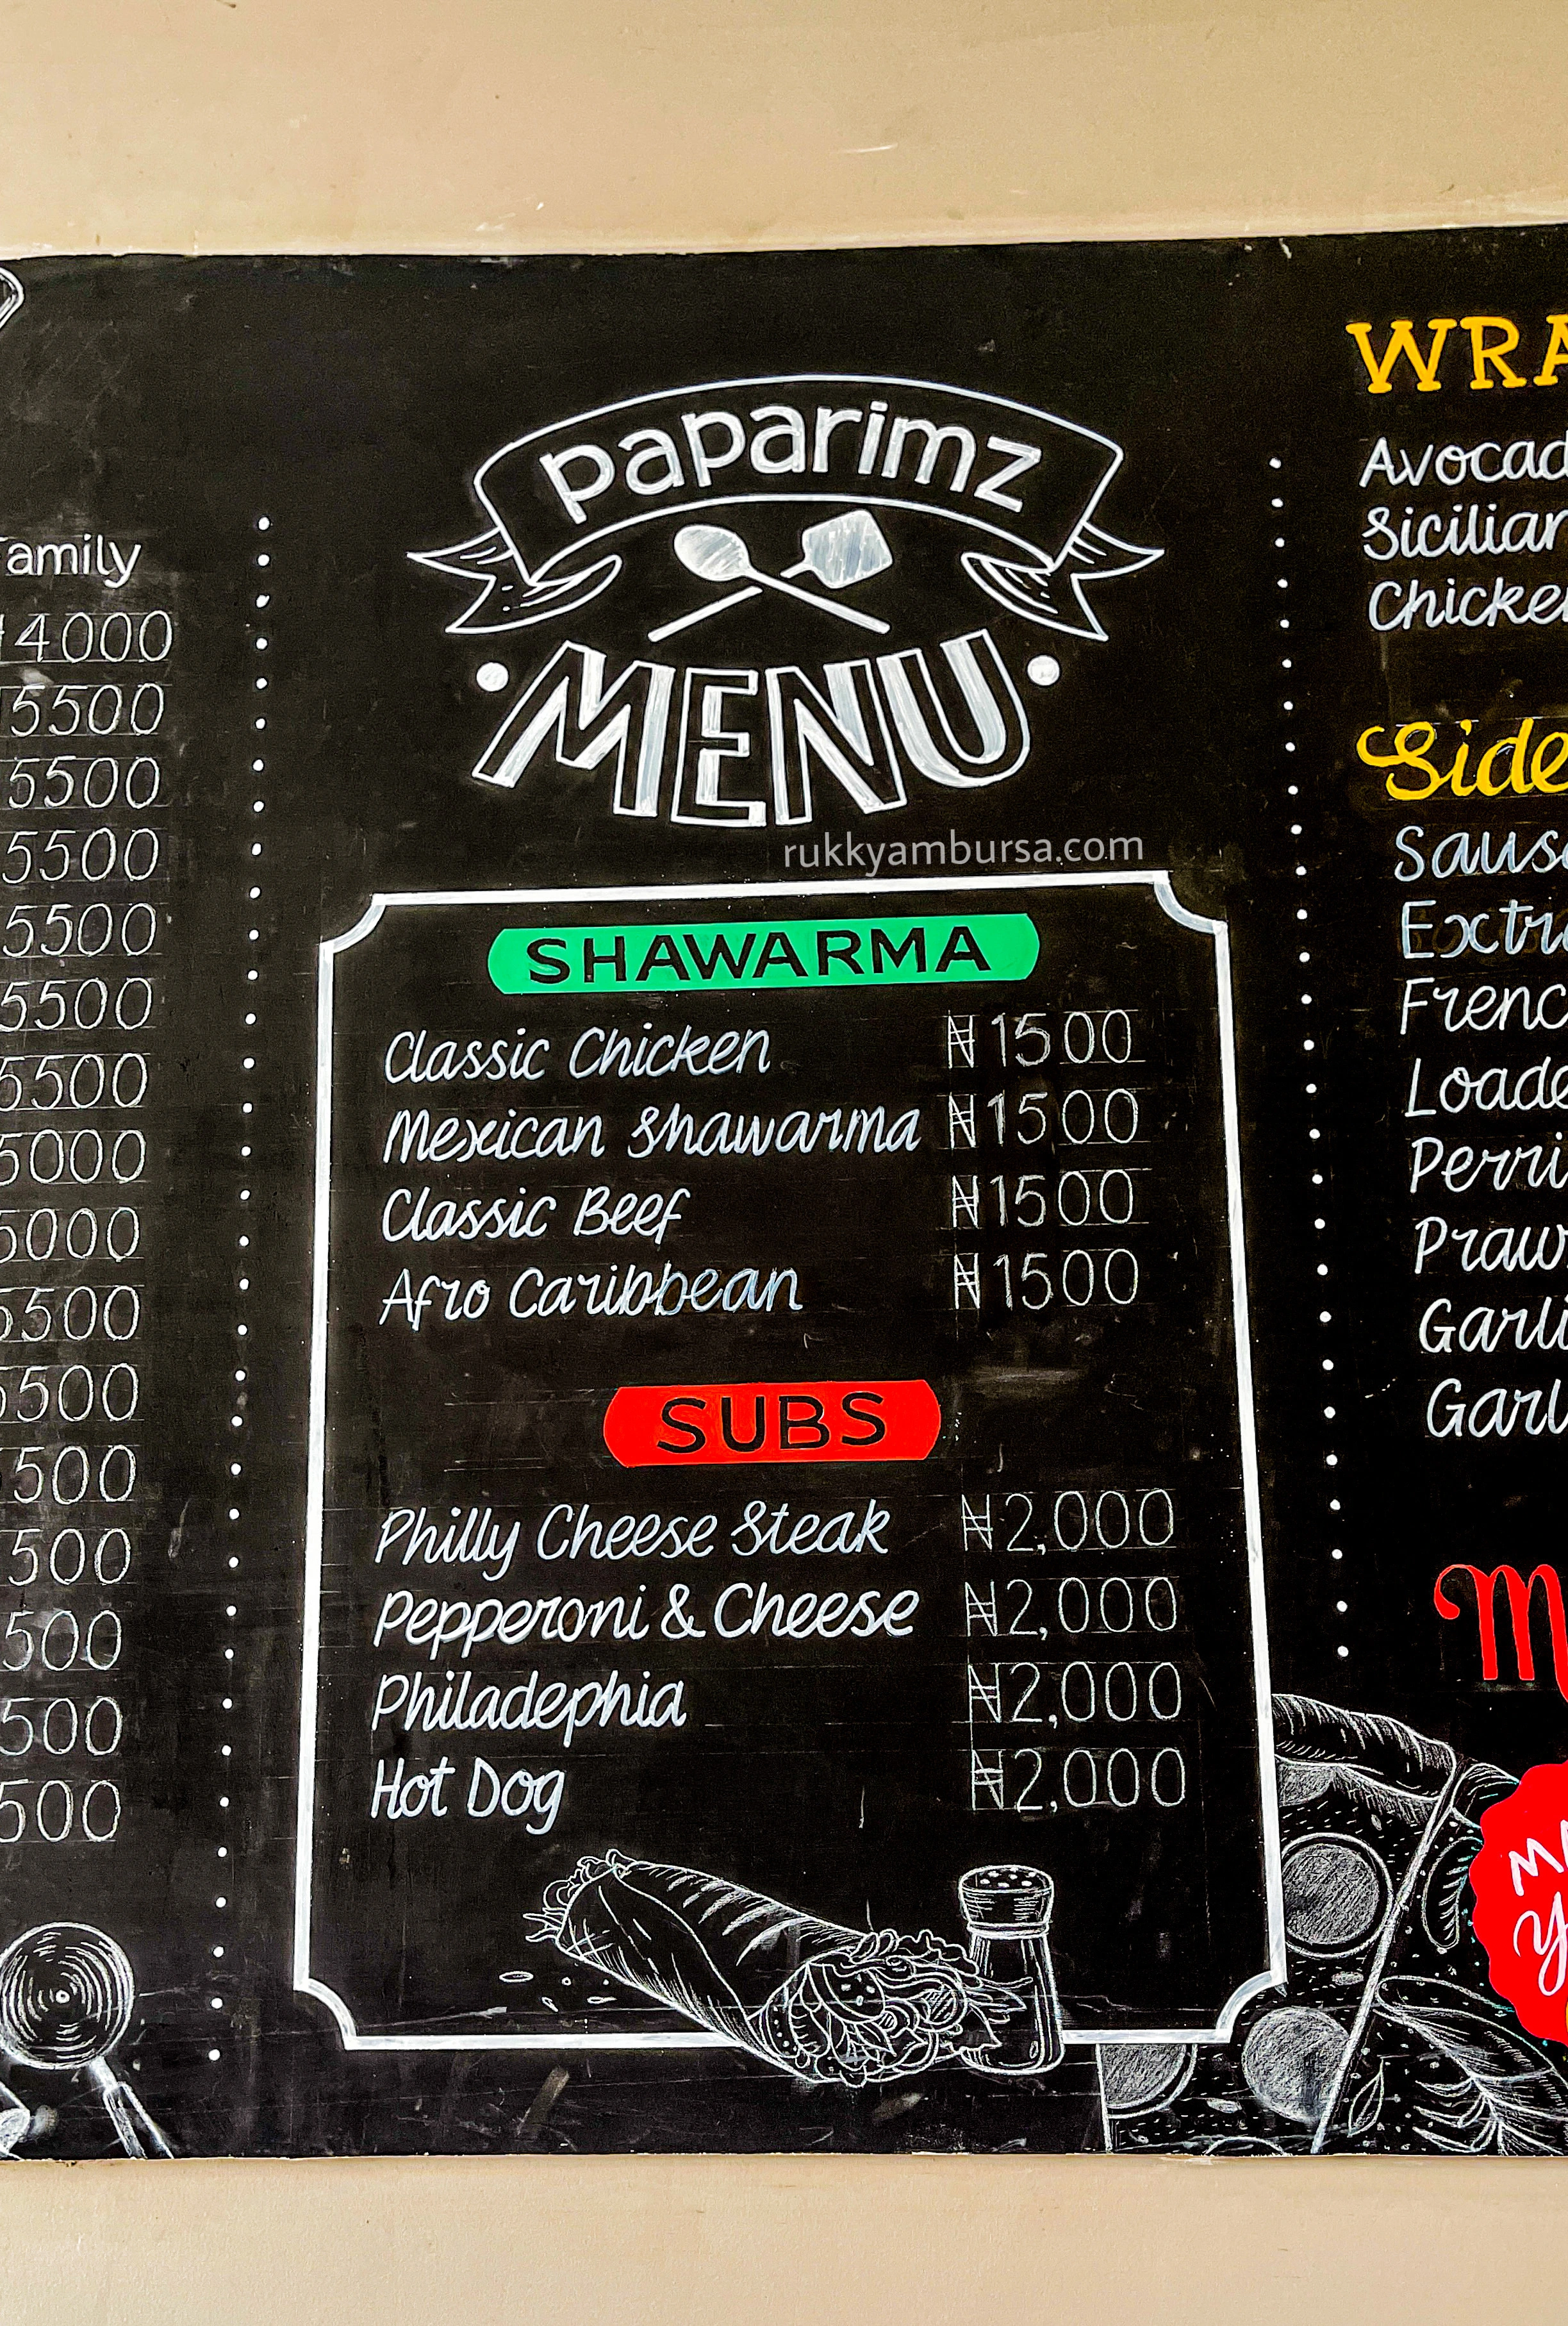 amily
4000
5500
5500
5500
5500
5500
5500
5000
5000
5500
5500
500
500
500
500
500
paparimz
MENU
rukkyambursa.com
SHAWARMA
Classic Chicken ₦1500
Mexican Shawarma ₦1500
Classic Beef ₦1500
Afro Caribbean ₦1500
SUBS
Philly Cheese Steak ₦2,000
Pepperoni & Cheese ₦2,000
Philadephia ₦2,000
Hot Dog ₦2,000
WRA
Avocad
Sicilian
Chicke
Side
Saus
Extr
Frenc
Loade
Perri
Praw
Garli
Garl
M
M
Y